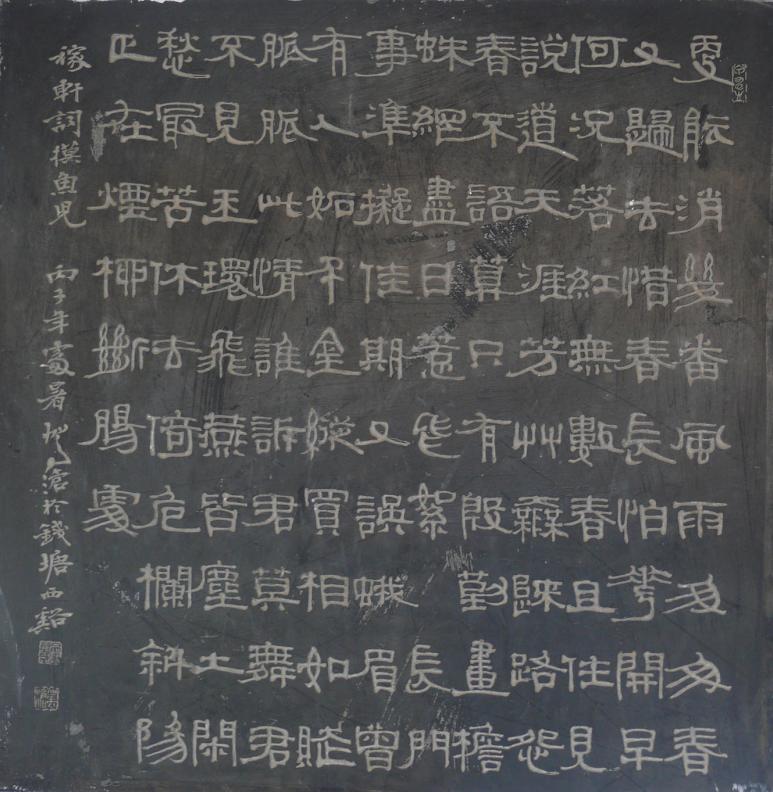 更能消幾番風雨匆匆春
又歸去惜春長怕花開早
何況落紅無數春且住見
說道天涯芳艸無歸路怨
春不語算只有殷勤畫檐
蛛網盡日惹飛絮 長門
事準擬佳期又誤蛾眉曾
有人妬千金縱買相如賦
脈脈此情誰訴君莫舞君
不見玉環飛燕皆塵土閑
愁最苦休去倚危欄斜陽
正在煙柳斷腸處
稼軒詞摸魚兒 丙子年處暑 滄於錢塘西谿